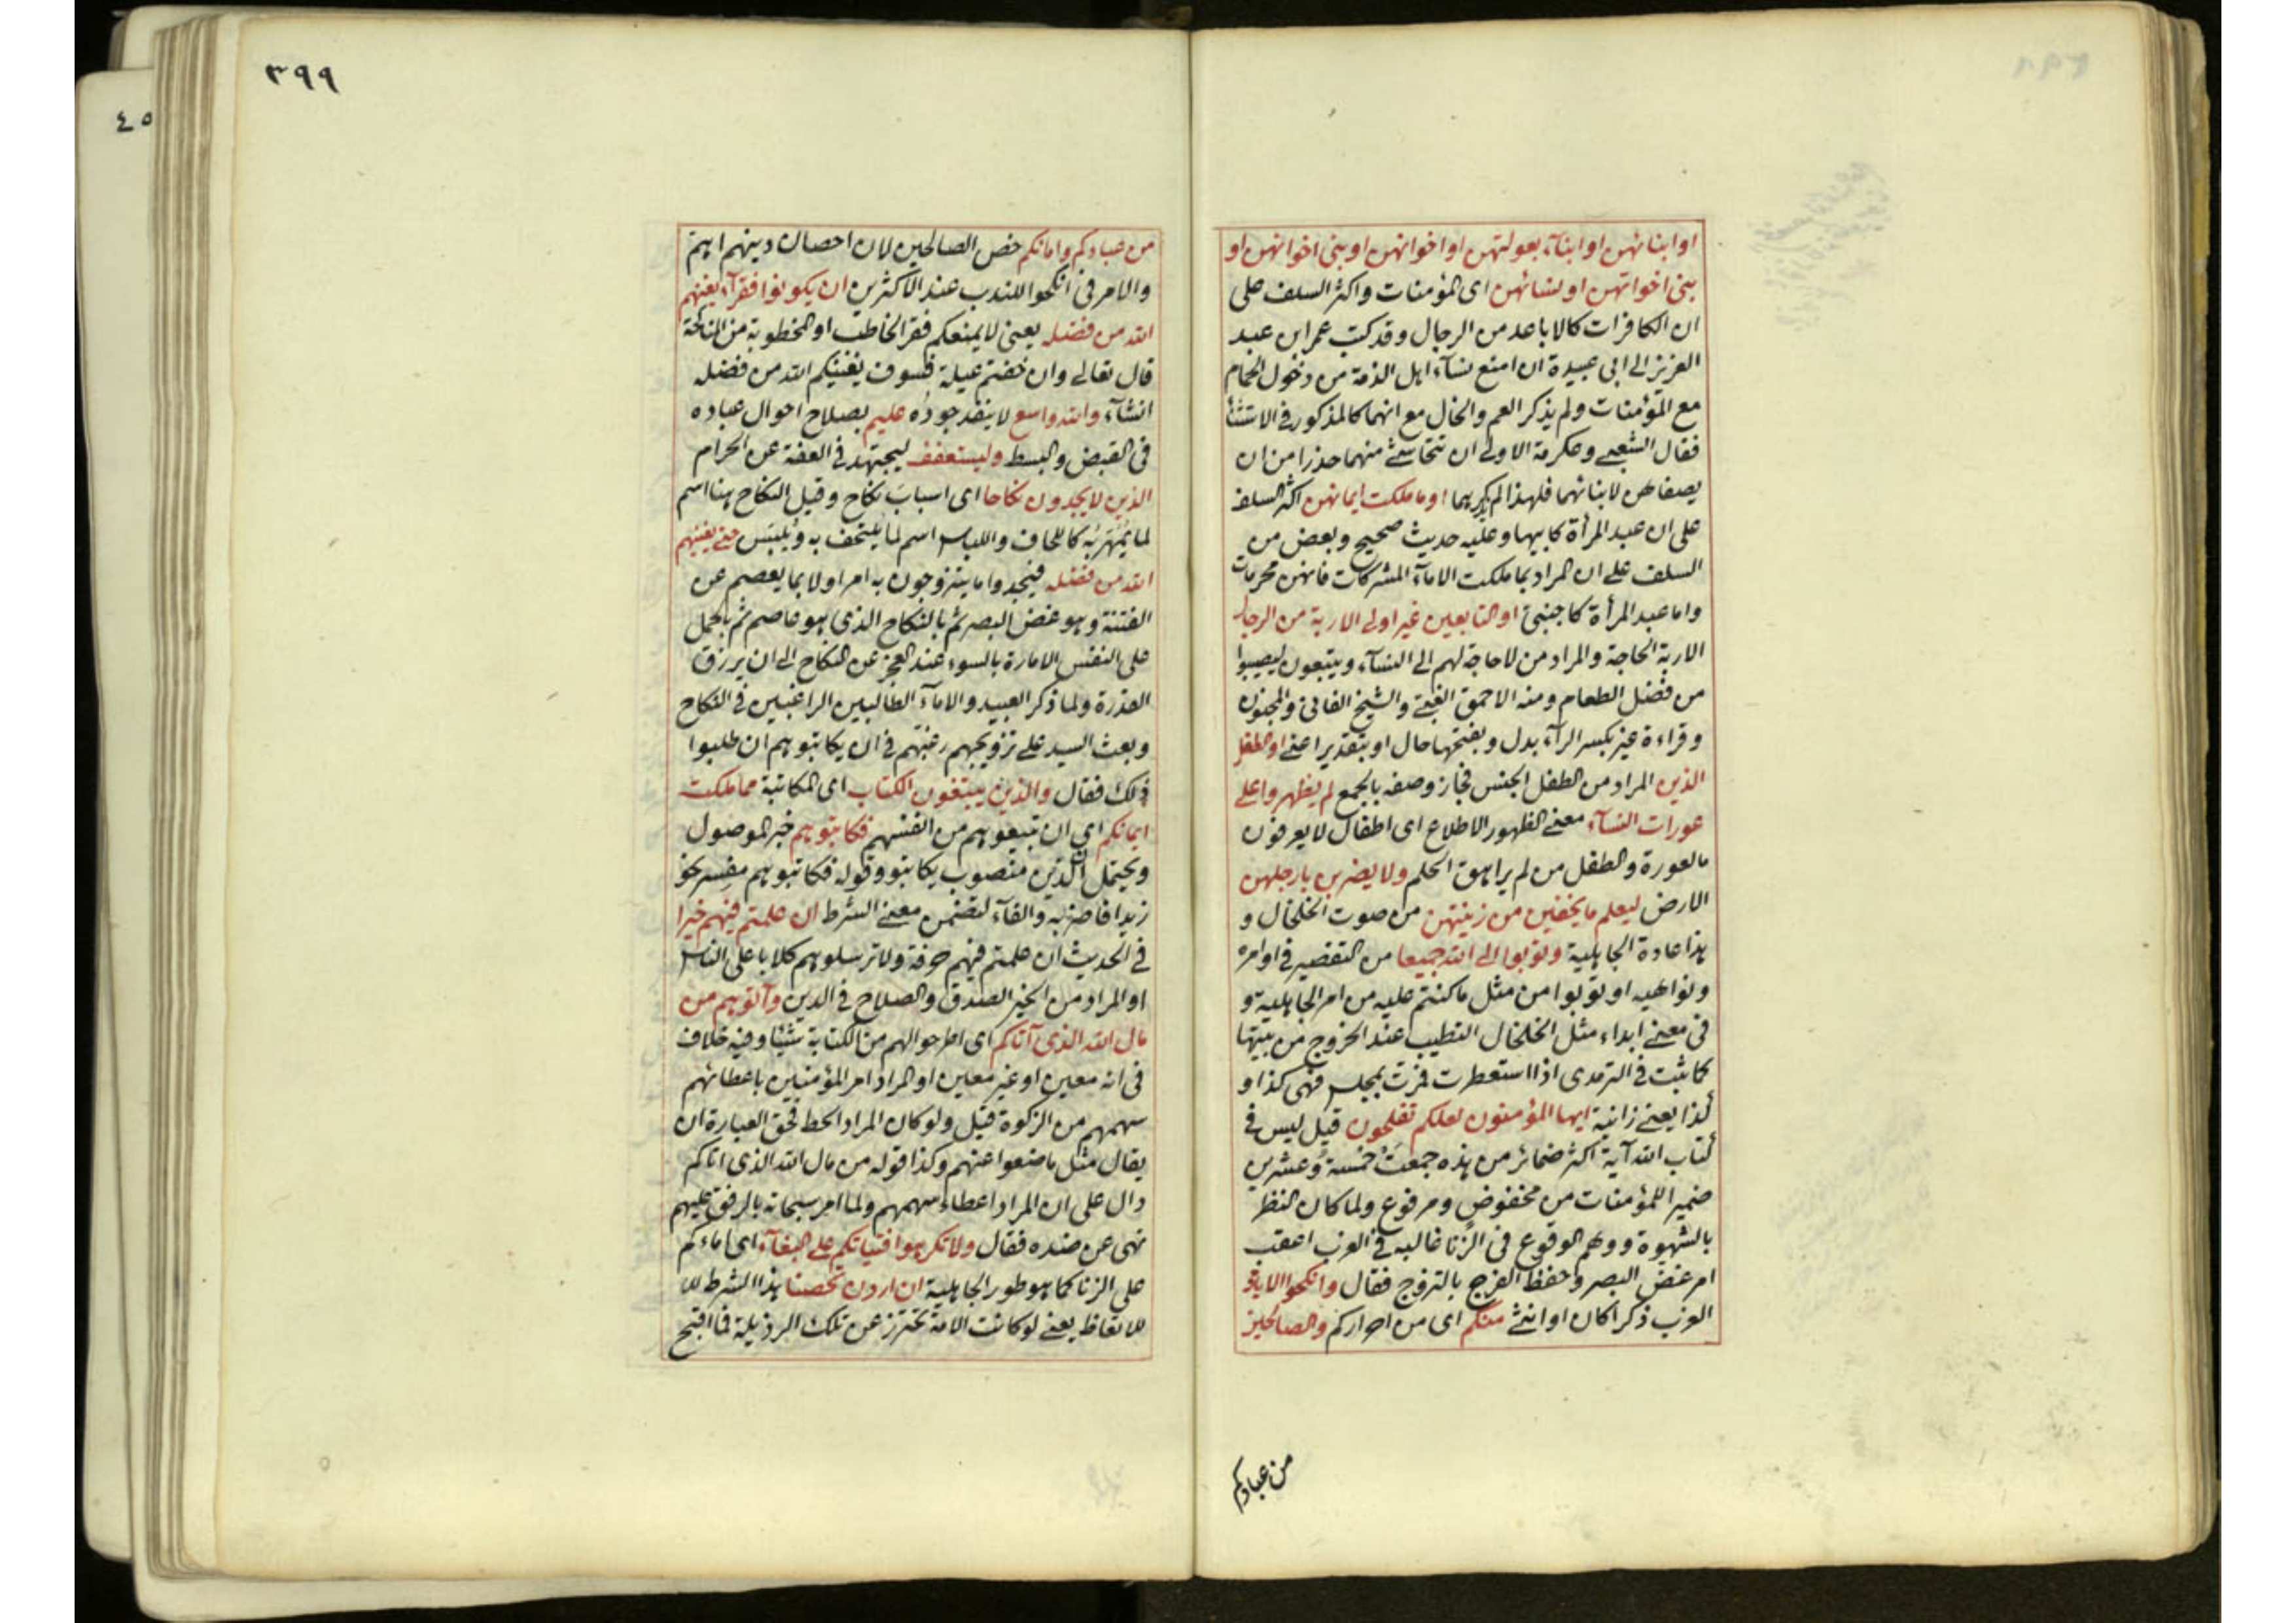 او ابنائهن او ابنآء بعولتهن او اخوانهن او بنى اخوانهن او
بنى اخواتهن او نسائهن اى المؤمنات واكثر السلف على
ان الكافرات كالاباعد من الرجال وقد كتب عمر ابن عبد
العزيز الى ابى عبيدة ان امنع نسآء اهل الذمة من دخول الحمام
مع المؤمنات ولم يذكر العم والخال مع انهما كالمذكور فى الاستثنأ
فقال الشعبى وعكرمة الاولى ان تتحاشى منهما حذرا من ان
يصفاهن لابنائهما فلهذا لم يذكرهما او ما ملكت ايمانهن اكثر السلف
على ان عبد المرأة كابيها وعليه حديث صحيح وبعض من
السلف على ان المراد بما ملكت الامآء المشركات فانهن محرمات
واما عبد المرأة كاجنبى او التابعين غير اولى الاربة من الرجال
الاربة الحاجة والمراد من لا حاجة لهم الى النسآء ويتبعون ليصيبوا
من فضل الطعام ومنه الاحمق الغبى والشيخ الفانى والمجنون
وقراءة غير بكسر الرآء بدل وبفتحها حال او بتقدير اعنى او الطفل
الذين المراد من الطفل الجنس فجاز وصفه بالجمع لم يظهروا على
عورات النسآء معنى الظهور الاطلاع اى اطفال لا يعرفون
مالعورة والطفل من لم يراهق الحلم ولا يضربن بارجلهن
الارض ليعلم ما يخفين من زينتهن من صوت الخلخال و
هذا عادة الجاهلية وتوبوا الى الله جميعا من التقصير فى اوامره
ونواهيه او توبوا من مثل ما كنتم عليه من امر الجاهلية و
فى معنى ابداء مثل الخلخال التطيب عند الخروج من بيتها
كما ثبت فى الترمذى اذا استعطرت فمرت بمجلس فهى كذا و
كذا يعنى زانية ايها المؤمنون لعلكم تفلحون قيل ليس فى
كتاب الله آية اكثر ضمائر من هذه جمعت خمسة وعشرين
ضمير اللمؤمنات من مخفوض ومرفوع ولما كان النظر
بالشهوة ووهم الوقوع فى الزنا غالبه فى العزب اعقب
امر غض البصر وحفظ الفرج بالتزوج فقال وانكحوا الايامى
العزب ذكرا كان او انثى منكم اى من احراركم والصالحين
من عبادكم
٣٩٩
من عبادكم وامائكم خص الصالحين لان احصان دينهم اهم
والامر فى انكحوا للندب عند الاكثرين ان يكونوا فقرآء يغنهم
الله من فضله يعنى لا يمنعكم فقر الخاطب او المخطوبة من المناكحة
قال تعالى وان خفتم عيلة فسوف يغنيكم الله من فضله
انشآء والله واسع لا ينفد جوده عليم بصلاح احوال عباده
فى القبض والبسط وليستعفف ليجتهد فى العفة عن الحرام
الذين لا يجدون نكاحا اى اسباب نكاح وقيل النكاح هنا اسم
لما يمهر به كاللحاف واللباس اسم لما يلتحف به ويلبس حتى يغنيهم
الله من فضله فيجدوا ما يتزوجون به امر اولا بما يعصم عن
الفتنة وهو غض البصر ثم بالنكاح الذى هو عاصم ثم بالحمل
على النفس الامارة بالسوء عند العجز عن النكاح الى ان يرزق
القدرة ولما ذكر العبيد والامآء الطالبين الراغبين فى النكاح
وبعث السيد على تزويجهم رغبهم فى ان يكاتبوهم ان طلبوا
ذلك فقال والذين يبتغون الكتاب اى المكاتبة مما ملكت
ايمانكم اى ان تبيعوهم من انفسهم فكاتبوهم خبر الموصول
ويحتمل ان الذين منصوب بكاتبوا وقوله فكاتبوهم مفسر نحو
زيدا فاضربه والفآء لتضمن معنى الشرط ان علمتم فيهم خيرا
فى الحديث ان علمتم فيهم حرفة ولا ترسلوهم كلابا على الناس
او المراد من الخير الصدق والصلاح فى الدين وآتوهم من
مال الله الذى آتاكم اى اطرحوا لهم من الكتابة شيئا وفيه خلاف
فى انه معين او غير معين او المراد امر المؤمنين باعطائهم
سهمهم من الزكوة قيل ولو كان المراد الحط فحق العبارة ان
يقال مثل ما ضعوا عنهم وكذا قوله من مال الله الذى اتاكم
دال على ان المراد اعطاء سهمهم ولما امر سبحانه بالرفق عليهم
نهى عن ضده فقال ولا تكرهوا فتياتكم على البغآء اى اماءكم
على الزنا كما هو طور الجاهلية ان اردن تحصنا هذا الشرط للا
للاتعاظ يعنى لو كانت الامة تحترز عن تلك الرذيلة فما اقبح